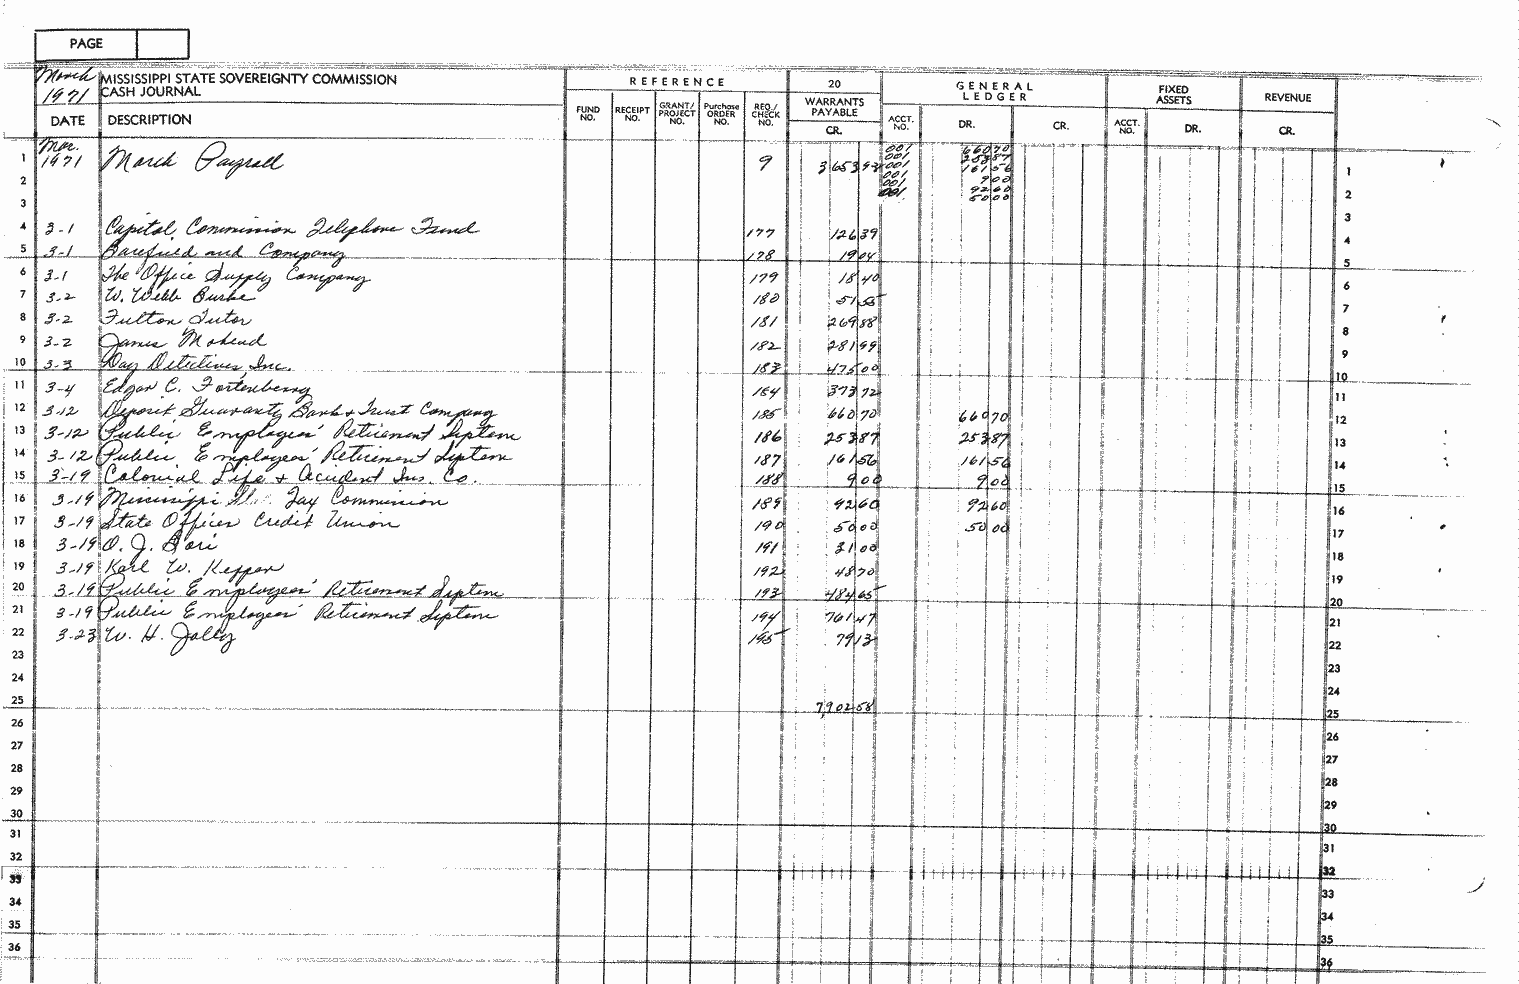 PAGE
March 1971 MISSISSIPPI STATE SOVEREIGNTY COMMISSION
CASH JOURNAL
REFERENCE 20 GENERAL LEDGER FIXED ASSETS REVENUE
DATE DESCRIPTION FUND NO. RECEIPT NO. GRANT/PROJECT NO. Purchase ORDER NO. REQ./CHECK NO. WARRANTS PAYABLE CR. ACCT. NO. DR. CR. ACCT. NO. DR. CR.
001 660 70
001 253 87
1 Mar. 1971 March Payroll 9 3 653 93 001 161 56 1
001 9 00
2 001 92 60 2
3 001 50 00 3
4 3-1 Capitol Commission Telephone Fund 177 126 39 4
5 3-1 Barefield and Company 178 19 04 5
6 3-1 The Office Supply Company 179 18 40 6
7 3-2 W. Webb Burke 180 51 55 7
8 3-2 Fulton Tutor 181 269 88 8
9 3-2 James Mohead 182 281 99 9
10 3-3 Day Detectives, Inc. 183 475 00 10
11 3-4 Edgar C. Fortenberry 184 373 72 11
12 3-12 Deposit Guaranty Bank & Trust Company 185 660 70 660 70 12
13 3-12 Public Employees' Retirement System 186 253 87 253 87 13
14 3-12 Public Employees' Retirement System 187 161 56 161 56 14
15 3-19 Colonial Life & Accident Ins. Co. 188 9 00 9 00 15
16 3-19 Mississippi Tax Commission 189 92 60 92 60 16
17 3-19 State Officer Credit Union 190 50 00 50 00 17
18 3-19 O. J. 191 31 00 18
19 3-19 Karl W. Kepper 192 48 70 19
20 3-19 Public Employees' Retirement System 193 484 65 20
21 3-19 Public Employees' Retirement System 194 761 47 21
22 3-23 W. H. Jolly 195 79 13 22
23 23
24 24
25 7,902 58 25
26 26
27 27
28 28
29 29
30 30
31 31
32 32
33 33
34 34
35 35
36 36